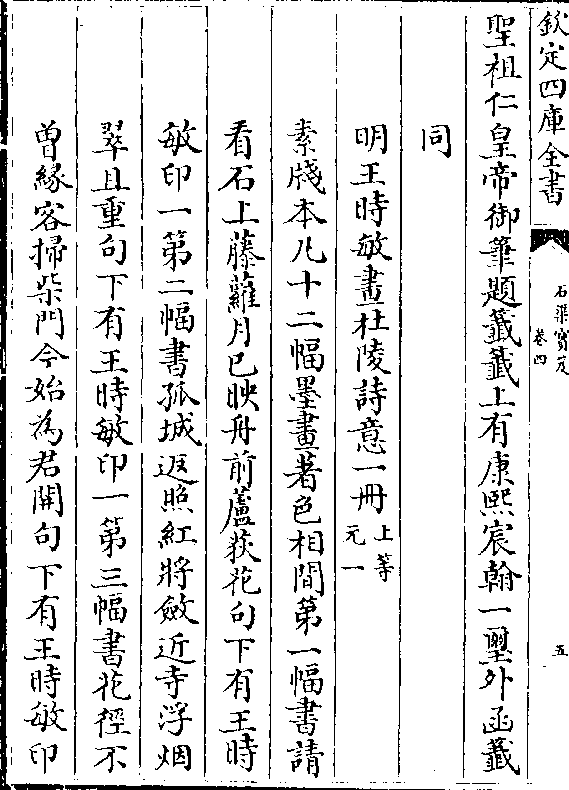 欽定四庫全書
石渠寶笈
卷四
五
聖祖仁皇帝御筆題籤籤上有康熙宸翰一璽外函籤
同
明王時敏畫杜陵詩意一冊上等
元一
素牋本凡十二幅墨畫著色相間第一幅書請
看石上藤蘿月已映舟前蘆荻花句下有王時
敏印一第二幅書孤城返照紅將斂近寺浮烟
翠且重句下有王時敏印一第三幅書花徑不
曾緣客掃柴門今始為君開句下有王時敏印